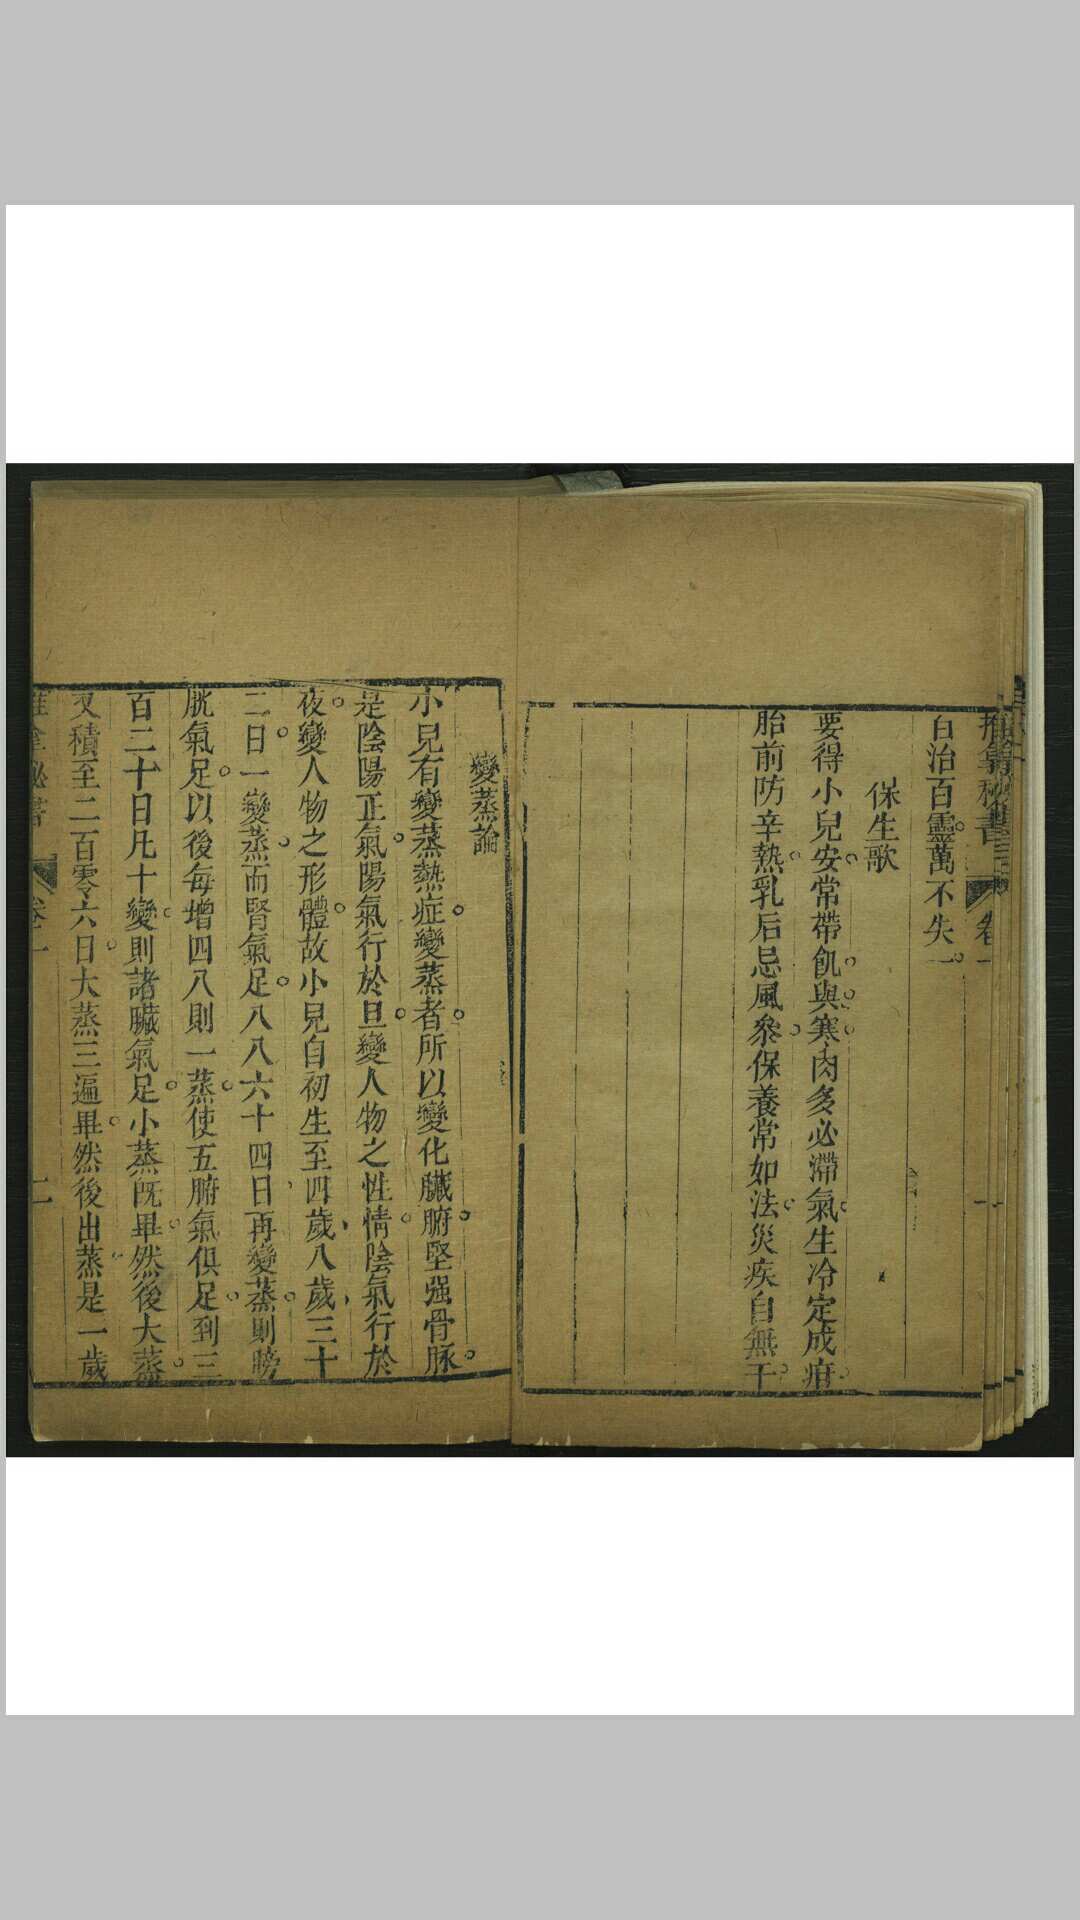 推拿秘書 卷一
百治百靈萬不失一
保生歌
要得小兒安常帶飢與寒肉多必滯氣生冷定成疳
胎前防辛熱乳后忌風參保養常如法災疾自無干
變蒸論
小兒有變蒸熱症變蒸者所以變化臟腑堅强骨脉
是陰陽正氣陽氣行於旦變人物之性情陰氣行於
夜變人物之形體故小兒自初生至四歲八歲三十
二日一變蒸而腎氣足八八六十四日再變蒸則膀
胱氣足以後每增四八則一蒸使五腑氣俱足到三
百二十日凡十變則諸臟氣足小蒸既畢然後大蒸
又積至二百零六日大蒸三遍畢然後出蒸是一歲
推拿秘書 卷一 二